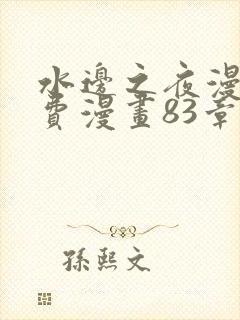 水邊之夜漫
費漫畫83章
孫熙文